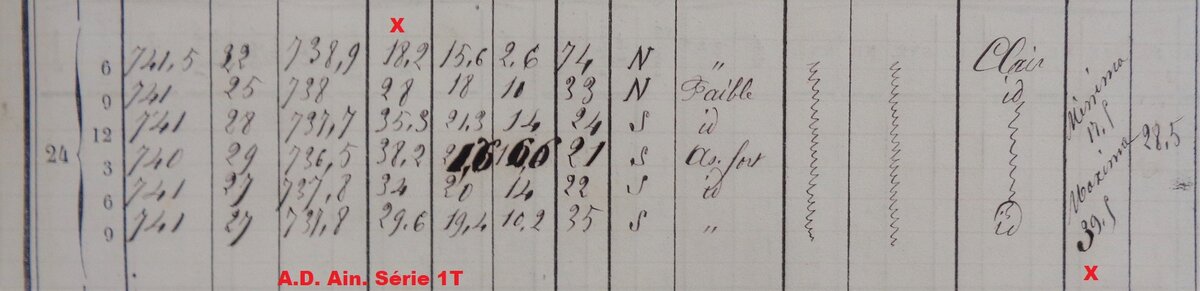 X
6 741,5 22 738,9 18,2 15,6 2,6 74 N „ Clair
9 741 25 738 28 18 10 33 N Faible id
12 741 28 737,7 35,3 21,3 14 24 S id
24 3 740 29 736,5 38,2 21 S As. fort
6 741 27 737,8 34 20 14 22 S id
9 741 27 737,8 29.6 19,4 10,2 35 S „ id
Minima 17.5
Maxima 39.5
28,5
A.D. Ain. Série 1T
X